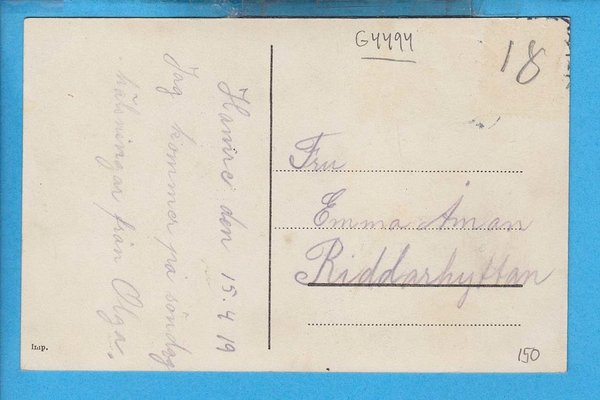 G4494
18
den 15.4 19
Jag kommer på söndag
hälsningar från Olga.
Fru
Emma Åman
Riddarhyttan
Imp.
150